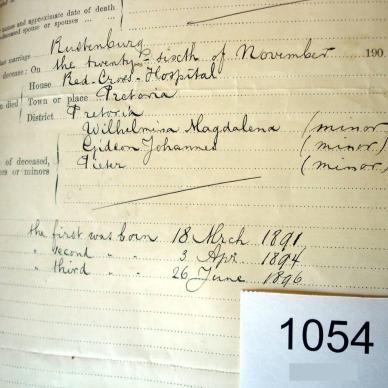 names and approximate date of death
deceased spouse or spouses
marriage Rustenburg
decease: On the twenty-sixth of November 190
House Red-Cross-Hospital
died Town or place Pretoria
District Pretoria
Wilhelmina Magdalena (minor
Gideon Johannes (minor)
of deceased, Pieter (minor)
or minors
the first was born 18 Mrch 1891
" second " " 3 Apr. 1894
" third " " 26 June 1896
1054